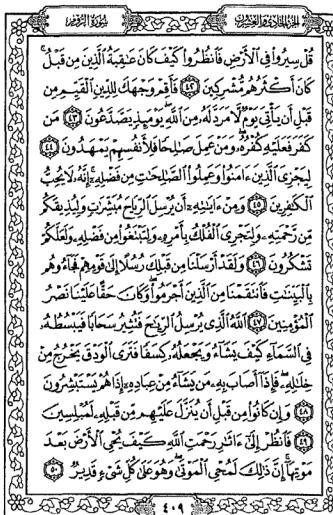 الجزء الحادي والعشرون سورة الروم
قُلْ سِيرُوا فِي ٱلْأَرْضِ فَٱنظُرُوا۟ كَيْفَ كَانَ عَٰقِبَةُ ٱلَّذِينَ مِن قَبْلُ
كَانَ أَكْثَرُهُم مُّشْرِكِينَ ﴿٤٢﴾ فَأَقِمْ وَجْهَكَ لِلدِّينِ ٱلْقَيِّمِ مِن
قَبْلِ أَن يَأْتِىَ يَوْمٌ لَّا مَرَدَّ لَهُۥ مِنَ ٱللَّهِ يَوْمَئِذٍ يَصَّدَّعُونَ ﴿٤٣﴾ مَن
كَفَرَ فَعَلَيْهِ كُفْرُهُۥ وَمَنْ عَمِلَ صَٰلِحًا فَلِأَنفُسِهِمْ يَمْهَدُونَ ﴿٤٤﴾
لِيَجْزِىَ ٱلَّذِينَ ءَامَنُوا۟ وَعَمِلُوا۟ ٱلصَّٰلِحَٰتِ مِن فَضْلِهِۦٓ إِنَّهُۥ لَا يُحِبُّ
ٱلْكَٰفِرِينَ ﴿٤٥﴾ وَمِنْ ءَايَٰتِهِۦٓ أَن يُرْسِلَ ٱلرِّيَاحَ مُبَشِّرَٰتٍ وَلِيُذِيقَكُم
مِّن رَّحْمَتِهِۦ وَلِتَجْرِىَ ٱلْفُلْكُ بِأَمْرِهِۦ وَلِتَبْتَغُوا۟ مِن فَضْلِهِۦ وَلَعَلَّكُمْ
تَشْكُرُونَ ﴿٤٦﴾ وَلَقَدْ أَرْسَلْنَا مِن قَبْلِكَ رُسُلًا إِلَىٰ قَوْمِهِمْ فَجَآءُوهُم
بِٱلْبَيِّنَٰتِ فَٱنتَقَمْنَا مِنَ ٱلَّذِينَ أَجْرَمُوا۟ وَكَانَ حَقًّا عَلَيْنَا نَصْرُ
ٱلْمُؤْمِنِينَ ﴿٤٧﴾ ٱللَّهُ ٱلَّذِى يُرْسِلُ ٱلرِّيَٰحَ فَتُثِيرُ سَحَابًا فَيَبْسُطُهُۥ
فِى ٱلسَّمَآءِ كَيْفَ يَشَآءُ وَيَجْعَلُهُۥ كِسَفًا فَتَرَى ٱلْوَدْقَ يَخْرُجُ مِنْ
خِلَٰلِهِۦ فَإِذَآ أَصَابَ بِهِۦ مَن يَشَآءُ مِنْ عِبَادِهِۦٓ إِذَا هُمْ يَسْتَبْشِرُونَ
﴿٤٨﴾ وَإِن كَانُوا۟ مِن قَبْلِ أَن يُنَزَّلَ عَلَيْهِم مِّن قَبْلِهِۦ لَمُبْلِسِينَ
﴿٤٩﴾ فَٱنظُرْ إِلَىٰٓ ءَاثَٰرِ رَحْمَتِ ٱللَّهِ كَيْفَ يُحْىِ ٱلْأَرْضَ بَعْدَ
مَوْتِهَآ إِنَّ ذَٰلِكَ لَمُحْىِ ٱلْمَوْتَىٰ وَهُوَ عَلَىٰ كُلِّ شَىْءٍ قَدِيرٌ ﴿٥٠﴾
٤٠٩